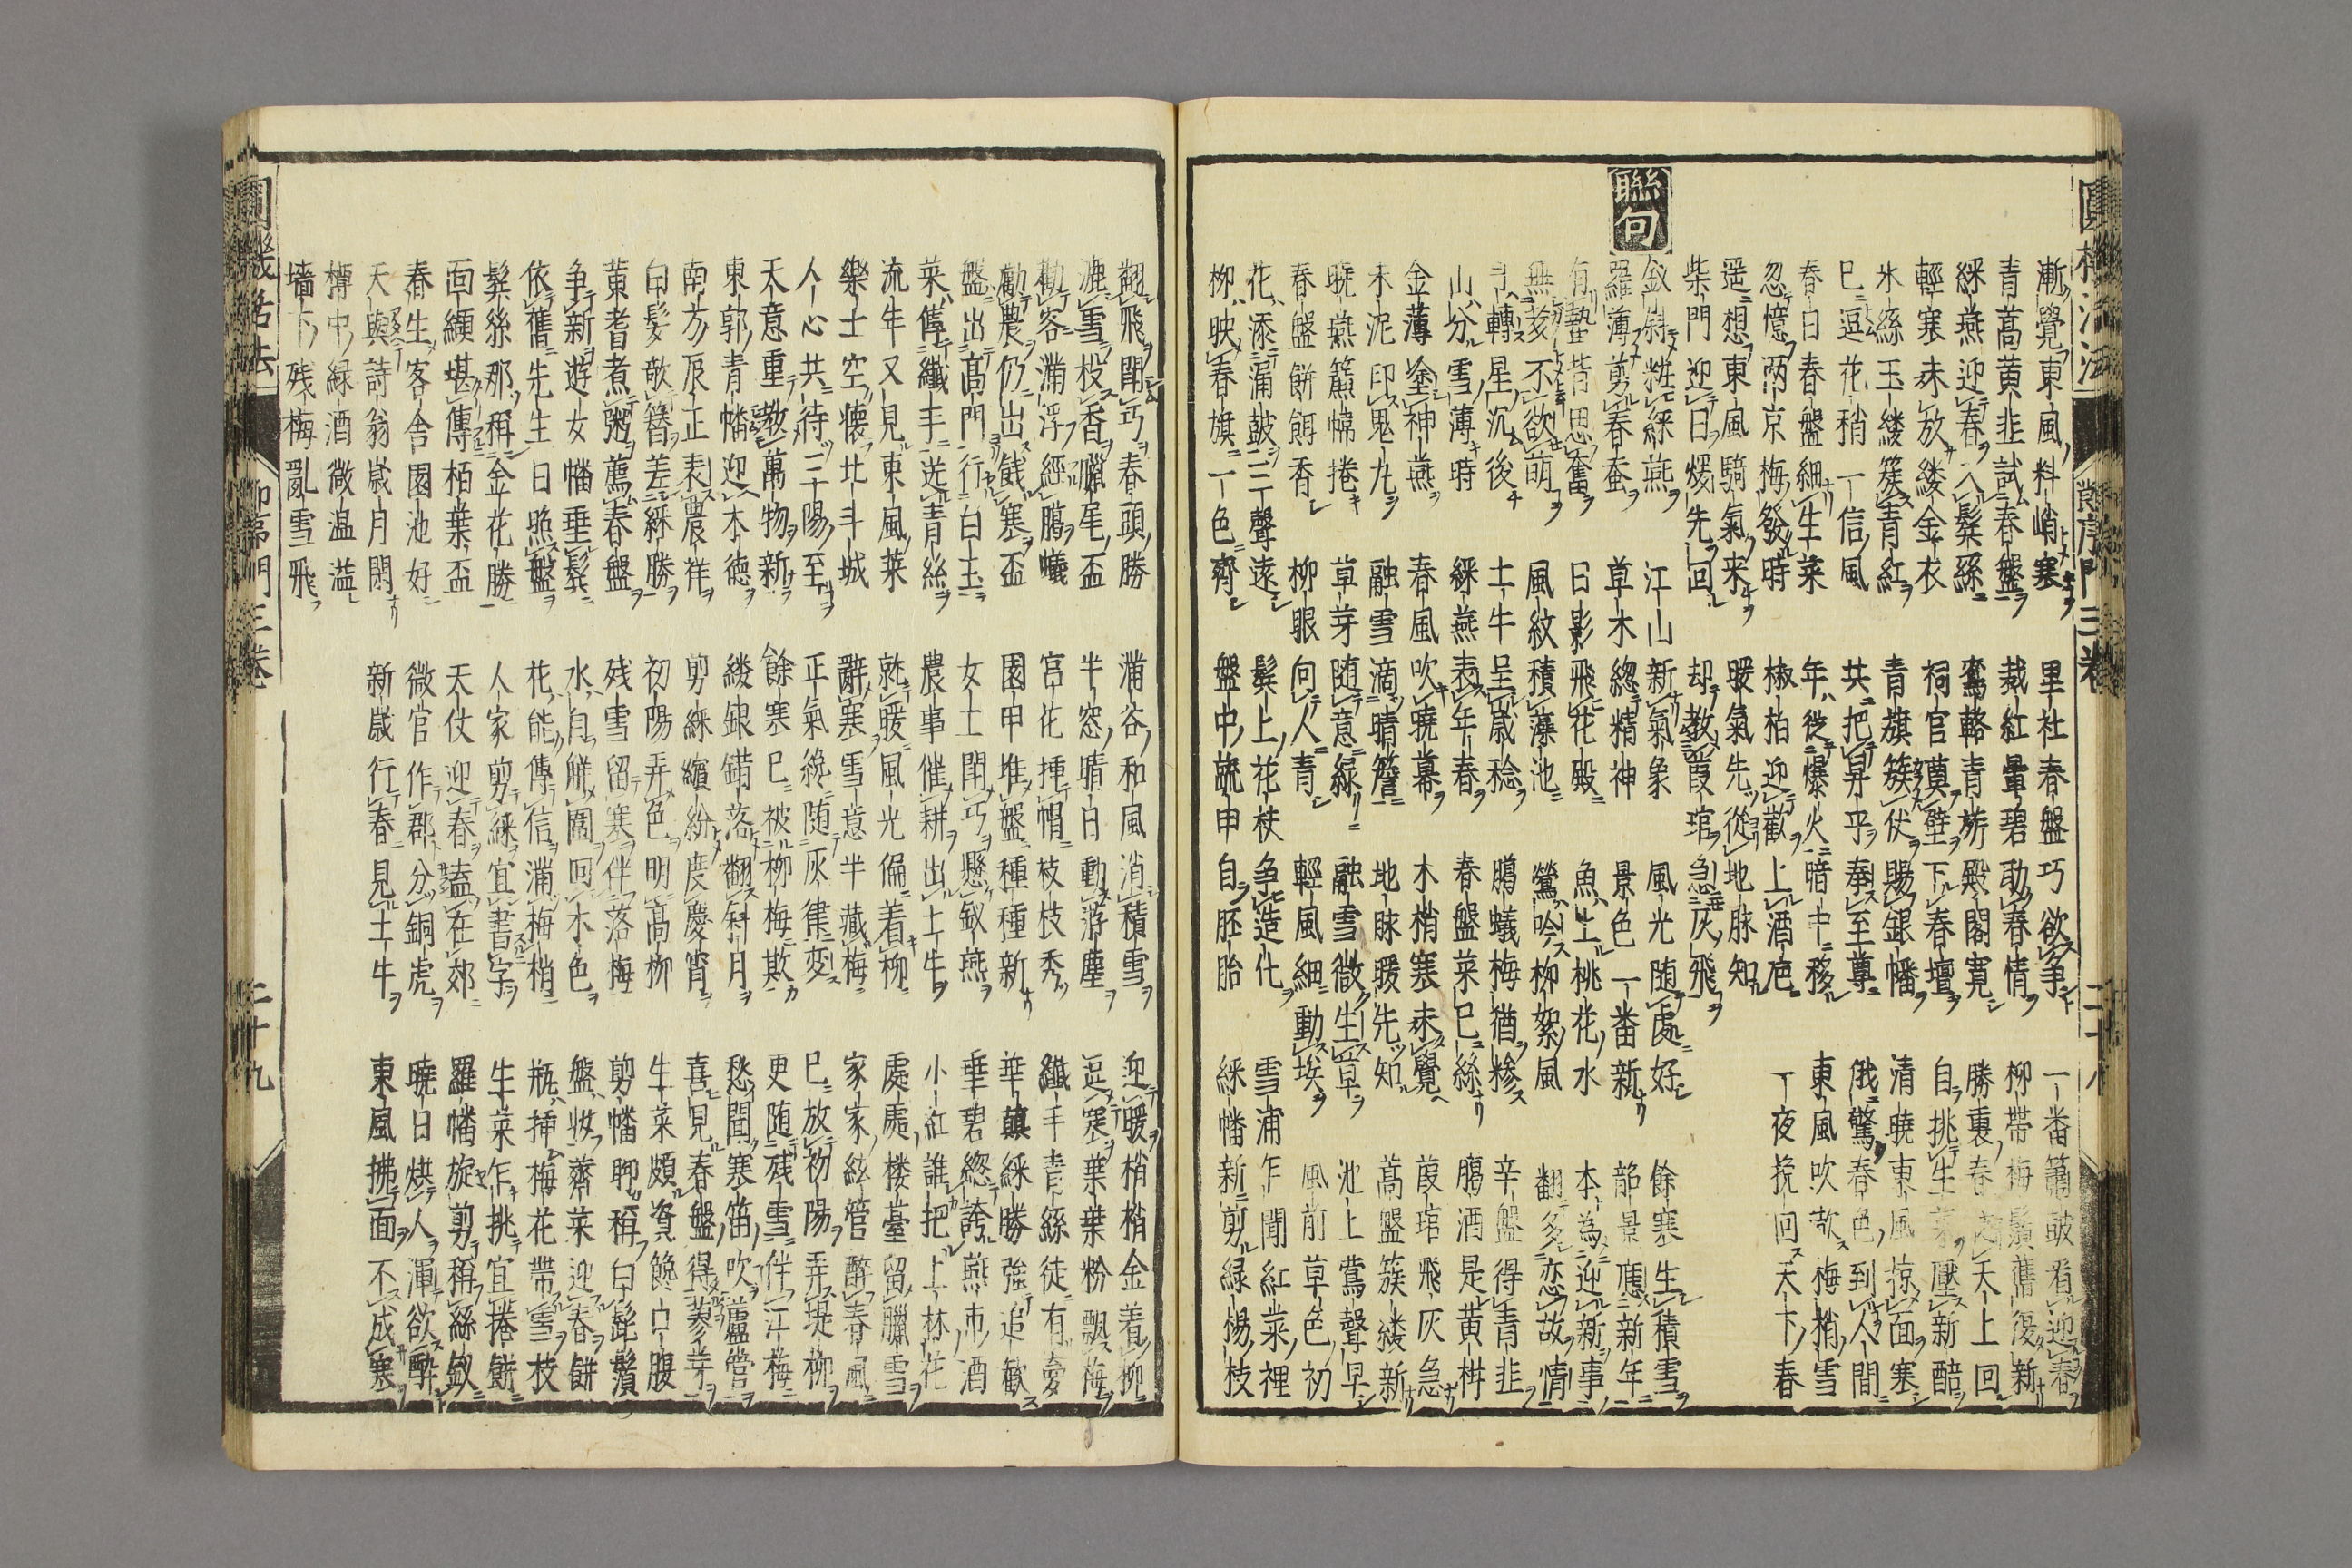 漸覺東風料峭寒 里社春盤巧欲爭 一番簫皷看迎春
青蒿黄韭試春盤 裁紅暈碧助春情 柳帶梅鬚舊復新
綵燕迎春入鬂絲 鸞輅青旂殿閣寛 勝裏春 天上回
輕寒未放縷金衣 祠官奠壁下春壇 自挑生菜壓新醅
氷絲玉縷簇青紅 青旗簇仗賜銀幡 清曉東風掠面寒
已逗花梢一信風 共把昇平奉至尊 俄驚春色到人間
春日春盤細生菜 年従爆火暗中移 東風吹散梅梢雪
忽憶两京梅發時 椒柏迎歡上酒巵 一夜挽回天下春
遥想東風騎氣来 暖氣先從地脉知
柴門迎日煖先回 却教葭琯急灰飛
聯句
釵斜粧綵燕 江山新氣象 風光随處好 餘寒生積雪
羅薄剪春蚕 草木緫精神 景色一番新 韶景應新年
有蟄皆思奮 日影飛花殿 魚上桃花水 本為迎新事
無荄不欲萌 風紋積藻池 鶯吟柳絮風 翻多恋故情
斗轉星沉後 土牛呈歳稔 鵝蟻梅猶糝 辛盤得青韭
山分雪薄時 綵燕表年春 春盤菜已絲 臈酒是黄柑
金薄塗神燕 春風吹曉幕 木梢寒未覺 葭琯飛灰急
朱泥印鬼丸 融雪滴晴簷 地脉暖先知 蒿盤簇縷新
曉燕簾幃捲 草芽随意緑 融雪微生草 池上鶯聲早
春盤餅餌香 柳眼向人青 輕風細動埃 風前草色初
花添漏皷三聲遠 鬂上花枝争造化 雪浦乍聞紅菜裡
柳映春旗一色齊 盤中蔬甲自胚胎 綵幡新剪緑楊枝
圓機活法 時序門三卷 二十八
翻飛閗巧春頭勝 滿谷和風消積雪 迎暖梢梢金着柳
漉雪投香臘尾盃 半窓晴日動游塵 逗寒葉葉粉飄梅
勸客滿浮經臈蟻 宮花挿帽枝枝秀 纎手青絲徒有夢
勸農仍出餞寒盃 園甲堆盤種種新 華顛綵勝強追歡
盤出高門行白玉 女士閗巧懸釵燕 垂碧緫誇燕市酒
菜傳纎手送青絲 農事催耕出土牛 小紅誰把上林花
流牛又見東風菜 就暖風光偏着柳 處處楼臺留臘雪
樂士空懐北斗城 辭寒雪意半藏梅 家家絃管醉春風
人心共待三陽至 正氣纔随灰律変 已放初陽弄堤柳
天意重教萬物新 餘寒已被柳梅欺 更随残雪伴江梅
東郭青幡迎木徳 縷銀錯落翻斜月 愁聞寒笛吹蘆管
南方辰正表農祥 剪綵繽紛度慶宵 喜見春盤得蓼芽
白髪敧簪差綵勝 初陽弄色明高柳 生菜頗資饞口腹
黄耆煮粥薦春盤 残雪留寒伴落梅 剪幡聊稱白髭鬚
争新遊女幡垂鬂 水自觧 回木色 盤妝薺菜迎春餅
依舊先生日照盤 花能傳信滿梅梢 瓶挿梅花帶雪枝
鬂絲那稱金花勝 人家剪綵宜書字 生菜乍挑宜捲餅
面纈堪傳栢葉盃 天仗迎春 在郊 羅幡旋剪稱絲釵
春生客舎園池好 微官作郡分銅虎 曉日烘人渾欲醉
天與詩翁歳月閑 新歳行春見土牛 東風拂面不成寒
樽中緑酒微温溢
墻下残梅亂雪飛
圓機活法 節序門三卷 二十九